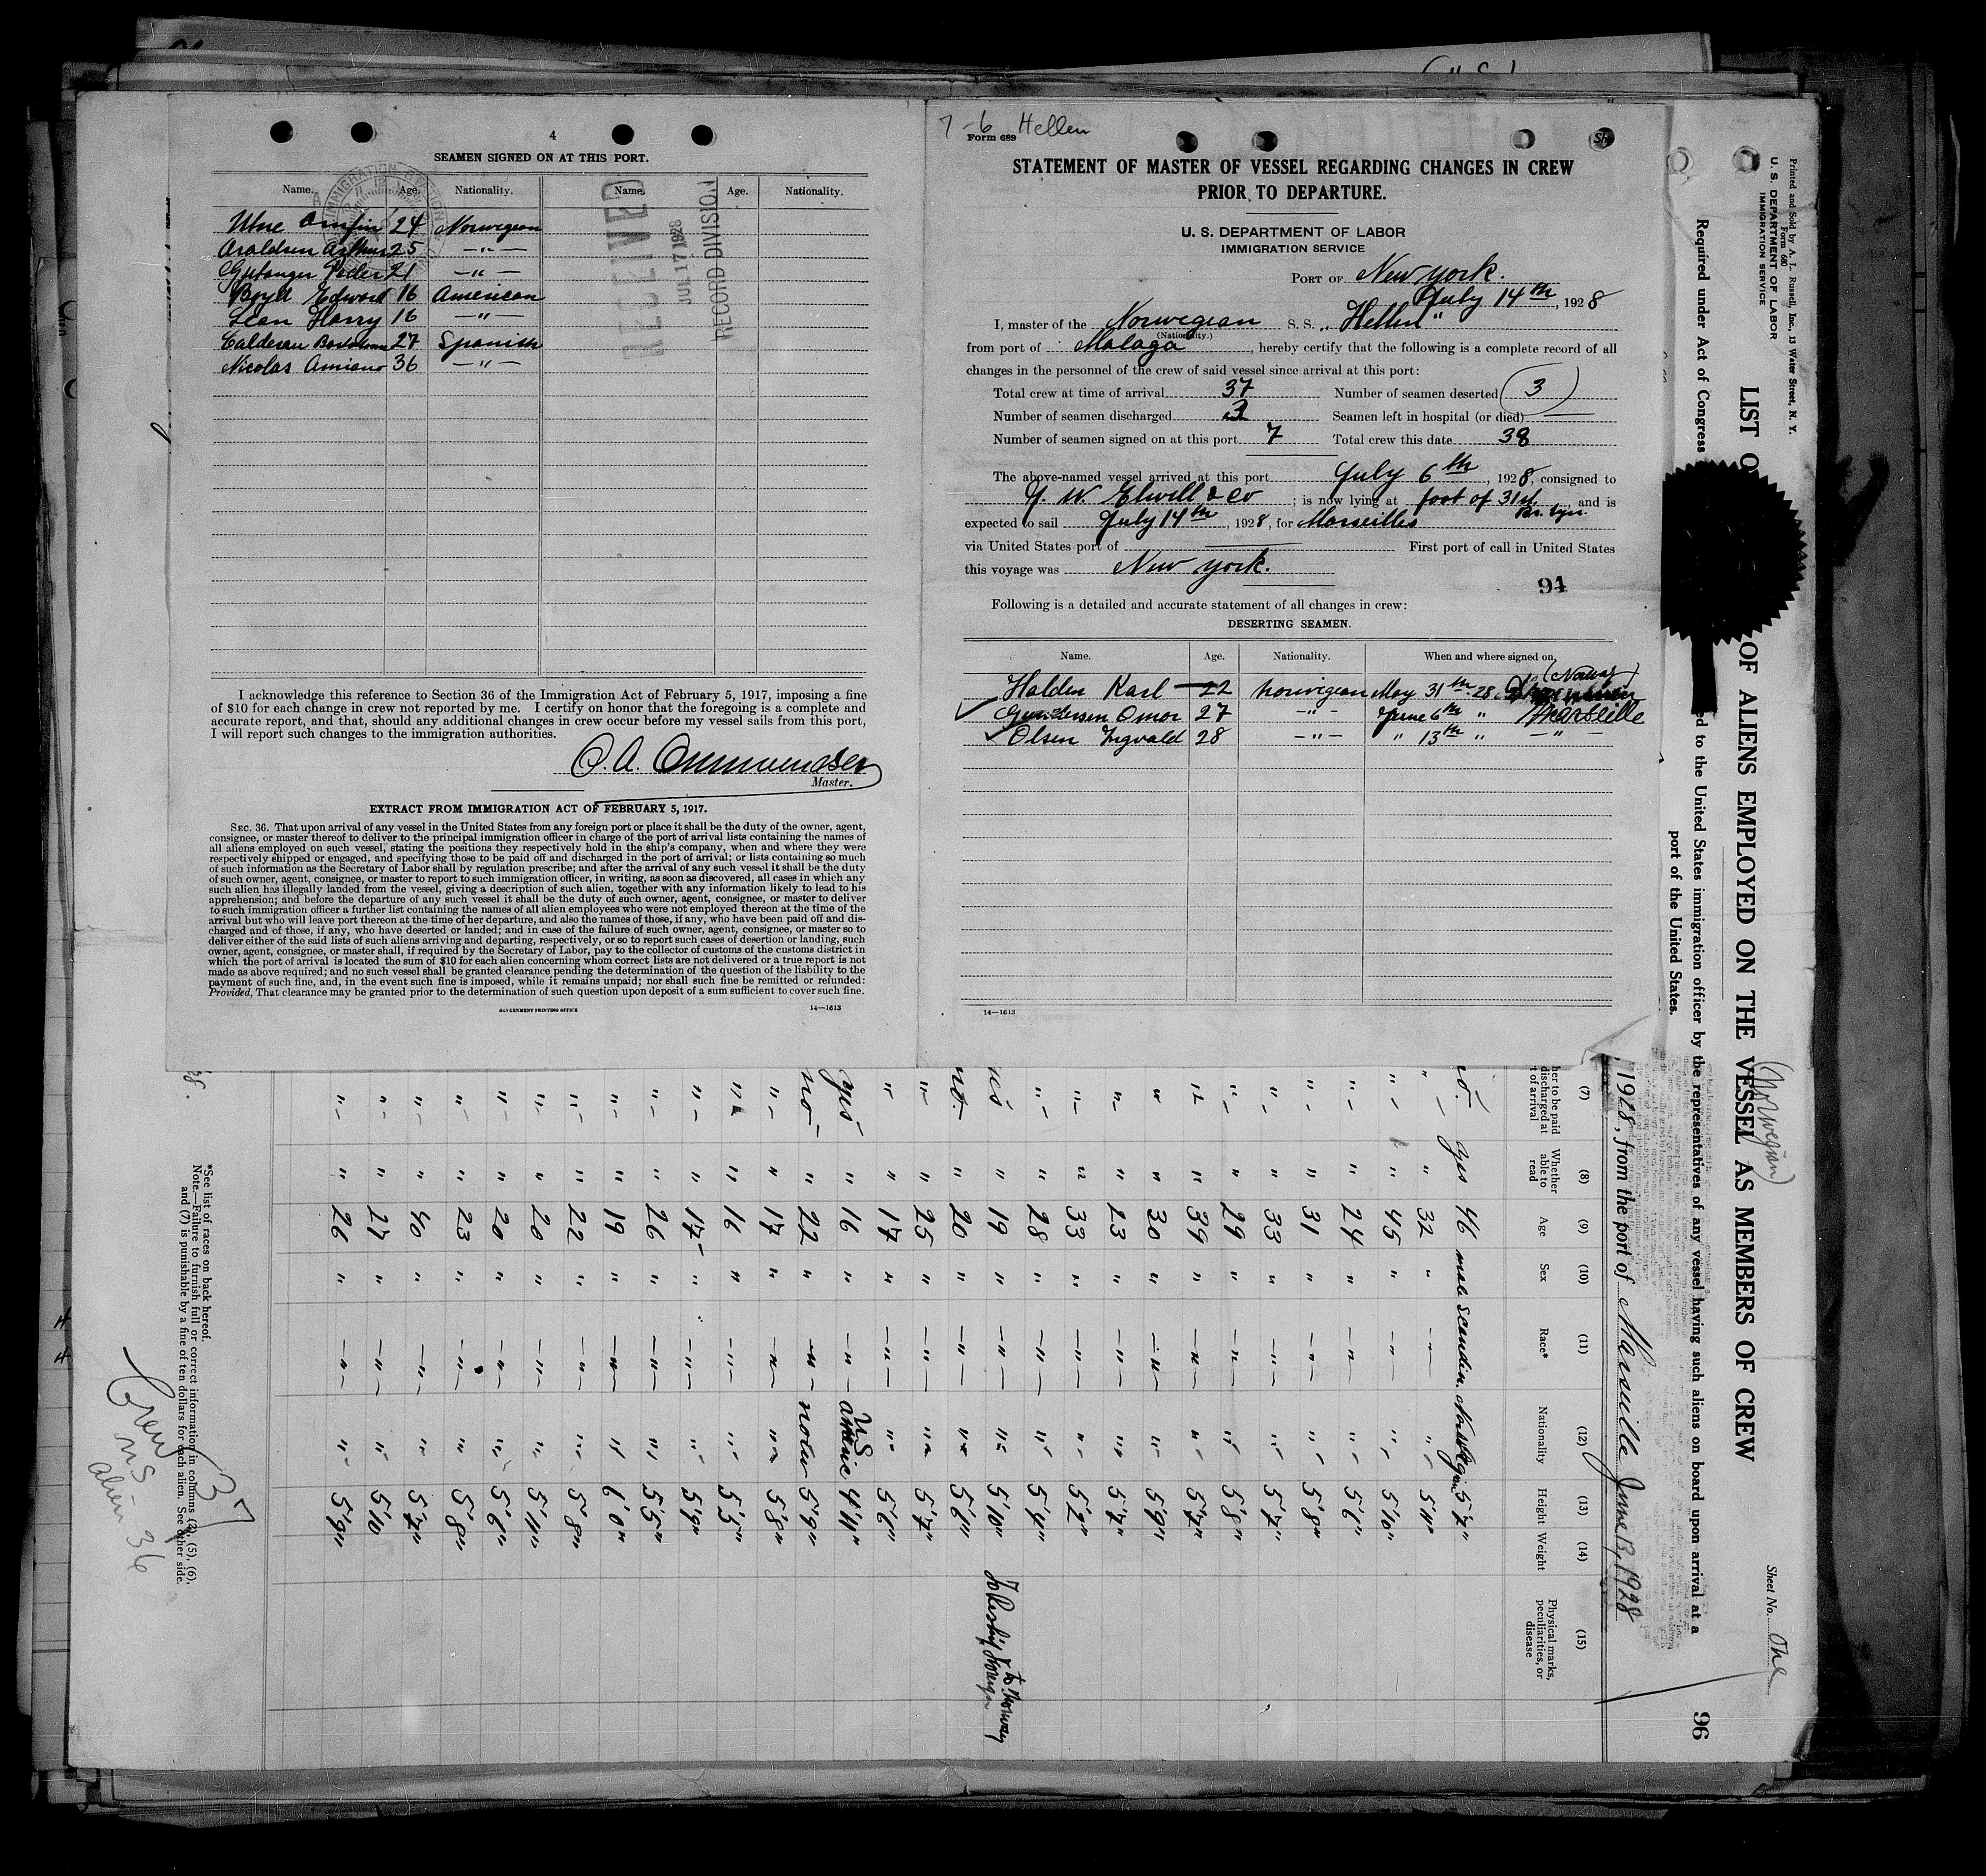 4
SEAMEN SIGNED ON AT THIS PORT.
Name. Age. Nationality. Name. Age. Nationality.
Utne 24 Norwegian
Araldsen Arthur 25 —"—
Peder 21 —"—
Boyd Edward 16 American
Lean Harry 16 —"—
27 Spanish
Nicolas Amiano 36 —"—
RECEIVED
JUL 17 1928
RECORD DIVISION
I acknowledge this reference to Section 36 of the Immigration Act of February 5, 1917, imposing a fine
of $10 for each change in crew not reported by me. I certify on honor that the foregoing is a complete and
accurate report, and that, should any additional changes in crew occur before my vessel sails from this port,
I will report such changes to the immigration authorities.
O. A.
Master.
EXTRACT FROM IMMIGRATION ACT OF FEBRUARY 5, 1917.
SEC. 36. That upon arrival of any vessel in the United States from any foreign port or place it shall be the duty of the owner, agent,
consignee, or master thereof to deliver to the principal immigration officer in charge of the port of arrival lists containing the names of
all aliens employed on such vessel, stating the positions they respectively hold in the ship's company, when and where they were
respectively shipped or engaged, and specifying those to be paid off and discharged in the port of arrival; or lists containing so much
of such information as the Secretary of Labor shall by regulation prescribe; and after the arrival of any such vessel it shall be the duty
of such owner, agent, consignee, or master to report to such immigration officer, in writing, as soon as discovered, all cases in which any
such alien has illegally landed from the vessel, giving a description of such alien, together with any information likely to lead to his
apprehension; and before the departure of any such vessel it shall be the duty of such owner, agent, consignee, or master to deliver
to such immigration officer a further list containing the names of all alien employees who were not employed thereon at the time of the
arrival but who will leave port thereon at the time of her departure, and also the names of those, if any, who have been paid off and dis-
charged and of those, if any, who have deserted or landed; and in case of the failure of such owner, agent, consignee, or master so to
deliver either of the said lists of such aliens arriving and departing, respectively, or so to report such cases of desertion or landing, such
owner, agent, consignee, or master shall, if required by the Secretary of Labor, pay to the collector of customs of the customs district in
which the port of arrival is located the sum of $10 for each alien concerning whom correct lists are not delivered or a true report is not
made as above required; and no such vessel shall be granted clearance pending the determination of the question of the liability to the
payment of such fine, and, in the event such fine is imposed, while it remains unpaid; nor shall such fine be remitted or refunded:
Provided, That clearance may be granted prior to the determination of such question upon deposit of a sum sufficient to cover such fine.
GOVERNMENT PRINTING OFFICE 14—1613
7-6 Hellen
Form 689
STATEMENT OF MASTER OF VESSEL REGARDING CHANGES IN CREW
PRIOR TO DEPARTURE.
U. S. DEPARTMENT OF LABOR
IMMIGRATION SERVICE
PORT OF New York.
July 14th, 1928
I, master of the Norwegian S. S. "Hellen"
(Nationality.)
from port of Malaga, hereby certify that the following is a complete record of all
changes in the personnel of the crew of said vessel since arrival at this port:
Total crew at time of arrival 37 Number of seamen deserted 3
Number of seamen discharged 3 Seamen left in hospital (or died) —
Number of seamen signed on at this port 7 Total crew this date 38
The above-named vessel arrived at this port July 6th, 1928, consigned to
J. W. Elwell & Co; is now lying at foot of 31st. and is
Br. lyn.
expected to sail July 14th, 1928, for Marseilles
via United States port of — First port of call in United States
this voyage was New York.
94
Following is a detailed and accurate statement of all changes in crew:
DESERTING SEAMEN.
Name. Age. Nationality. When and where signed on.
Halden Karl 22 Norwigean May 31th 28
Gundersen Omar 27 —"— June 6th " Marseille
Olsen Ingvald 28 —"— " 13th " —"—
14—1613
Printed and Sold by A. L. Russell, Inc., 13 Water Street, N. Y.
Form 680
U. S. DEPARTMENT OF LABOR
IMMIGRATION SERVICE
Sheet No. One
96
LIST OF ALIENS EMPLOYED ON THE VESSEL AS MEMBERS OF CREW
(Norwegian)
Required under Act of Congress ed to the United States immigration officer by the representatives of any vessel having such aliens on board upon arrival at a
port of the United States.
1928, from the port of Marseille June 13, 1928
(7) (8) (9) (10) (11) (12) (13) (14) (15)
her to be paid discharged at t of arrival
Whether able to read
Age
Sex
Race*
Nationality
Height
Weight
Physical marks, peculiarities, or disease
no. yes 46 male Scandin. Norwegian 5'7"
" " 32 " —"— " 5'11"
" " 45 " —"— " 5'10"
" " 24 " —"— " 5'6"
" " 31 " —"— " 5'8"
" " 33 " —"— " 5'7"
" " 29 " —"— " 5'8"
" " 39 " —"— " 5'7"
" " 30 " —"— " 5'9"
" " 23 " —"— " 5'7"
" " 33 " —"— " 5'2"
" " 28 " —"— " 5'4"
" 19 " —"— " 5'10" to Norway
no " 20 " —"— " 5'6"
" " 25 " —"— " 5'7"
" " 17 " —"— " 5'6"
yes " 16 " —"— US 4'11"
no " 22 " —"— norw 5'9"
" " 17 " —"— " 5'8"
" " 16 " —"— " 5'5"
" " 17 " —"— " 5'9"
" " 26 " —"— " 5'5"
" " 19 " —"— " 6'0"
" " 22 " —"— " 5'8"
" " 20 " —"— " 5'11"
" " 20 " —"— " 5'6"
" " 23 " —"— " 5'8"
" " 40 " —"— " 5'7"
" " 27 " —"— " 5'10"
" " 26 " —"— " 5'9"
*See list of races on back hereof.
Note.—Failure to furnish full or correct information in columns (2), (5), (6),
and (7) is punishable by a fine of ten dollars for each alien. See other side.
Crew 37
US
alien 36